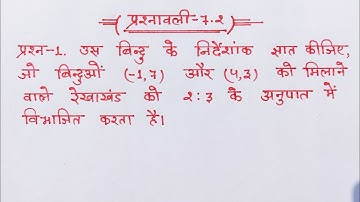 ( प्रश्नावली-7.2 )
प्रश्न-1. उस बिन्दु के निर्देशांक ज्ञात कीजिए,
जो बिन्दुओं (-1,7) और (4,3) को मिलाने
वाले रेखाखंड को 2:3 के अनुपात में
विभाजित करता है।